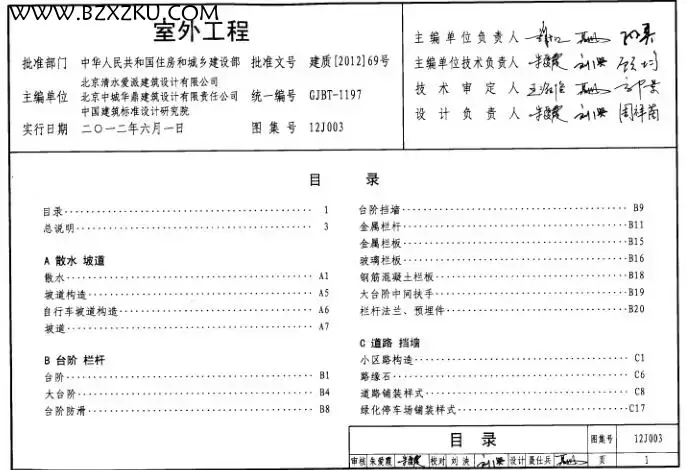 WWW.BZXZKU.COM
室外工程
批准部门 中华人民共和国住房和城乡建设部 批准文号 建质[2012]69号
主编单位 北京清水爱派建筑设计有限公司
北京中城华鼎建筑设计有限责任公司
中国建筑标准设计研究院
统一编号 GJBT-1197
实行日期 二〇一二年六月一日 图集号 12J003
主编单位负责人
主编单位技术负责人
技术审定人
设计负责人
目 录
目录 1
总说明 3
A 散水 坡道
散水 A1
坡道构造 A5
自行车坡道构造 A6
坡道 A7
B 台阶 栏杆
台阶 B1
大台阶 B4
台阶防滑 B8
台阶挡墙 B9
金属栏杆 B11
金属栏板 B15
玻璃栏板 B16
钢筋混凝土栏板 B18
大台阶中间扶手 B19
栏杆法兰、预埋件 B20
C 道路 挡墙
小区路构造 C1
路缘石 C6
道路铺装样式 C8
绿化停车场铺装样式 C17
目 录 图集号 12J003
审核 朱爱霞 校对 刘泱 设计 聂仕兵 页 1